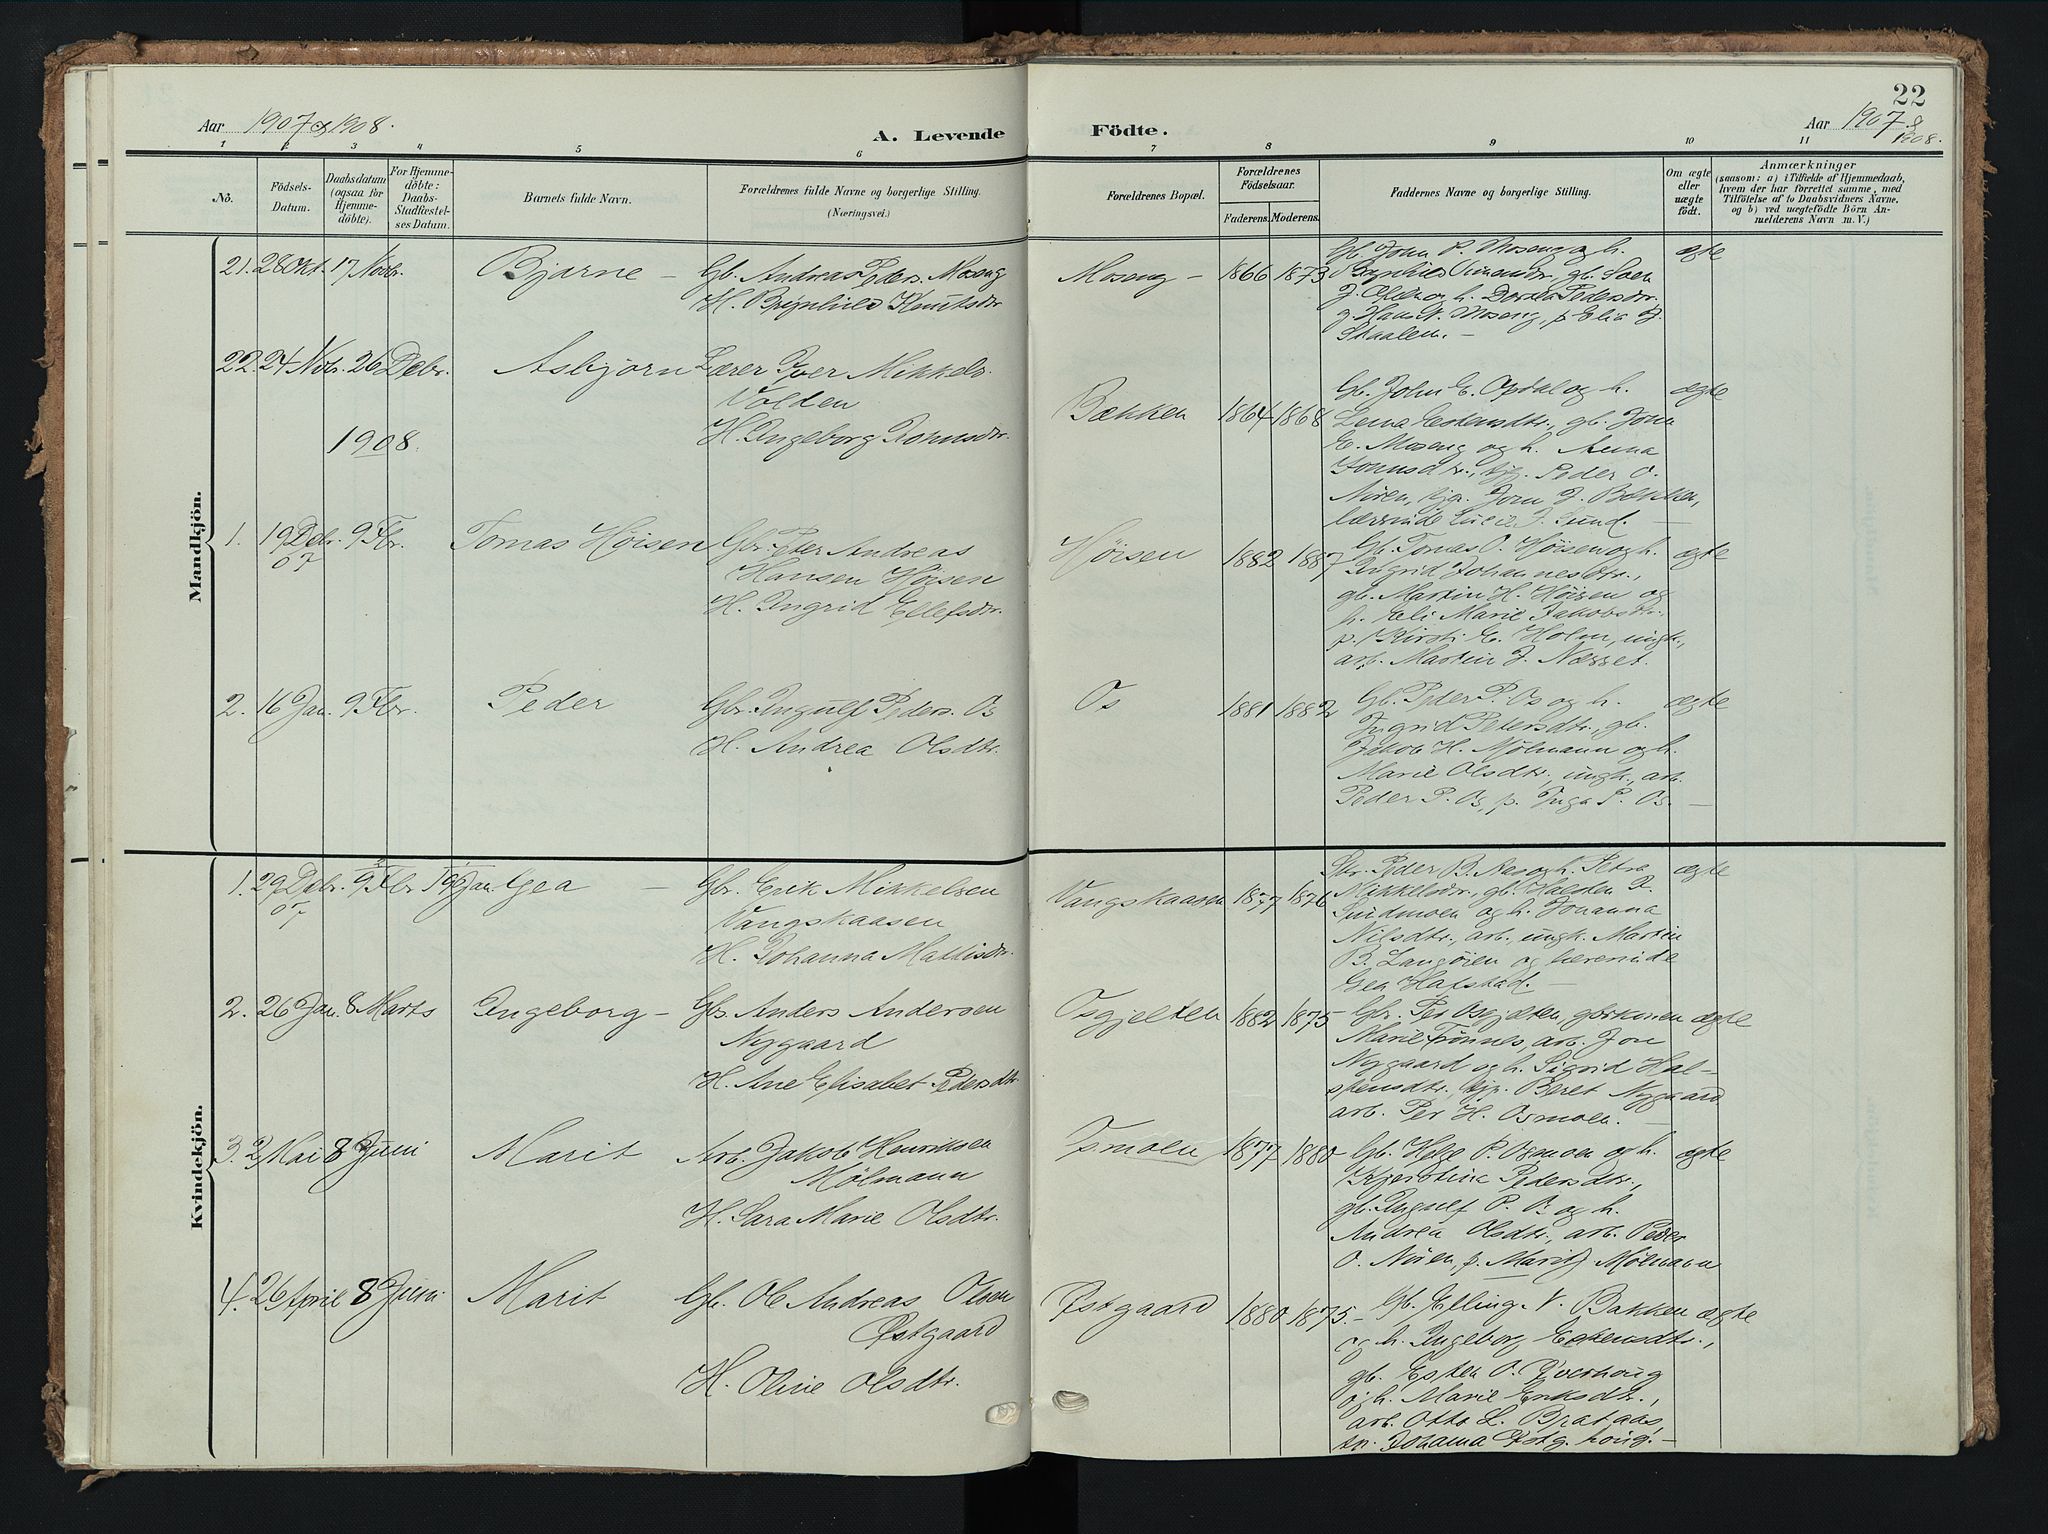 22
Aar 1907 og 1908.
A. Levende Födte.
Aar 1907 & 1908.
1 2 3 4 5 6 7 8 9 10 11
No.
Födsels-
Datum.
Daabsdatum
(ogsaa for
Hjemme-
döbte).
For Hjemme-
döbte:
Daabs-
Stadfæstel-
ses Datum.
Barnets fulde Navn.
Forældrenes fulde Navne og borgerlige Stilling.
(Næringsvei.)
Forældrenes Bopæl.
Forældrenes
Födselsaar.
Faderens. Moderens.
Faddernes Navne og borgerlige Stilling.
Om ægte
eller
uægte
født.
Anmærkninger
(saasom: a) i Tilfælde af Hjemmedaab,
hvem der har forrettet samme, med
Tilföielse af to Daabsvidners Navne,
og b) ved uægtefödte Börn An-
melderens Navn m. V.)
Mandkjön.
21. 28 Okt. 17 Novbr. Bjarne – Gb. Andreas Peders. Moseng
H. Brynhild Knutsdr.
Moseng – 1866 1873
Gb. John P. Moseng og h.
Brynhild Simensdr., gb. Sven
J. og h. Dorthea Pedersdr.
g. Hans N. Moseng, p. Elia J.
Skaalen. –
ægte
22. 24 Nvbr. 26 Debr. Asbjørn Lærer Iver Mikkels.
Volden
H. Ingeborg Johnsdr.
Bækken 1864 1868
Gb. John E. Opdal og h.
Lena Estensdtr., gb. Jona
E. Moseng og h. Anna
Jonnsdtr., tjg. Peder O.
Nüren, tjg. Jom J. Bækken,
lærerinde Lucie J. Sund. –
ægte
1908.
1. 19 Debr. 07 9 Fbr. Tomas Høisen Gbr. Peter Andreas
Hansen Høisen
H. Ingrid Ellefsdr.
Høisen 1882 1887
Gb. Tomas O. Høisen og h.
Ingrid Johannesdtr.,
gb. Martin H. Høisen og
h. Eli Marie Jakobsdtr.
p. Kirsti E. Holm, ungk.,
arb. Martin J. Næsset.
ægte
2. 16 Jan. 9 Fbr. Peder Gbr. Ingulf Peders. Os
H. Andrea Olsdtr.
Os 1881 1882
Gb. Peder P. Os og h.
Ingrid Petersdtr., gb.
Jakob H. Mølmann og h.
Marie Olsdtr., ungk., arb.
Peder P. Os, p. Inga P. Os. –
ægte
Kvindekjön.
1. 29 Debr. 07 9 Fbr Jan. Gea – Gbr. Erik Mikkelsen
Vangskaasen
H. Johanna Mattisdr.
Vangskaasen 1877 1876
Gbr. Peder B. Næs og h. Petra
Mikkelsdr., gb. Halsten J.
Sundmoen og h. Johanna
Nilsdtr., arb. ungk. Martin
B. Langøien og lærerinde
Gea Hafstad. –
ægte
2. 26 Jan. 8 Marts Ingeborg – Gbr. Anders Andersen
Nygaard
H. Ane Elisabet Pedersdtr.
Osgjelten 1882 1875
Gbr. Per Osgjelten, gbrkonen
Marie Tønnes, arb. Jon
Nygaard og h. Sigrid Hal-
stensdtr., tjp. Beret Nygaard
arb. Per H. Osmoen. –
ægte
3. 2 Mai 8 Juni Marit Arb. Jakob Henriksen
Mølmann
H. Sara Marie Olsdtr.
Osmoen 1877 1880
Gb. Helge P. Osmoen og h.
Kjerstine Pedersdtr.,
gb. Ingulf P. Os og h.
Andrea Olsdtr., arb. Peder
O. Nüren, p. Marit J. Mølmann
ægte
4. 26 April 8 Juni Marit Gb. Ole Andreas Olsen
Østgaard
H. Oline Olsdtr.
Østgaard 1880 1875. –
Gb. Elling N. Bakken
og h. Ingeborg Estensdtr.,
gb. Esten O. Kverhoug
og h. Marie Eriksdtr.,
arb. Otto L. Brataas,
tp. Johanna Østg. houg. –
ægte